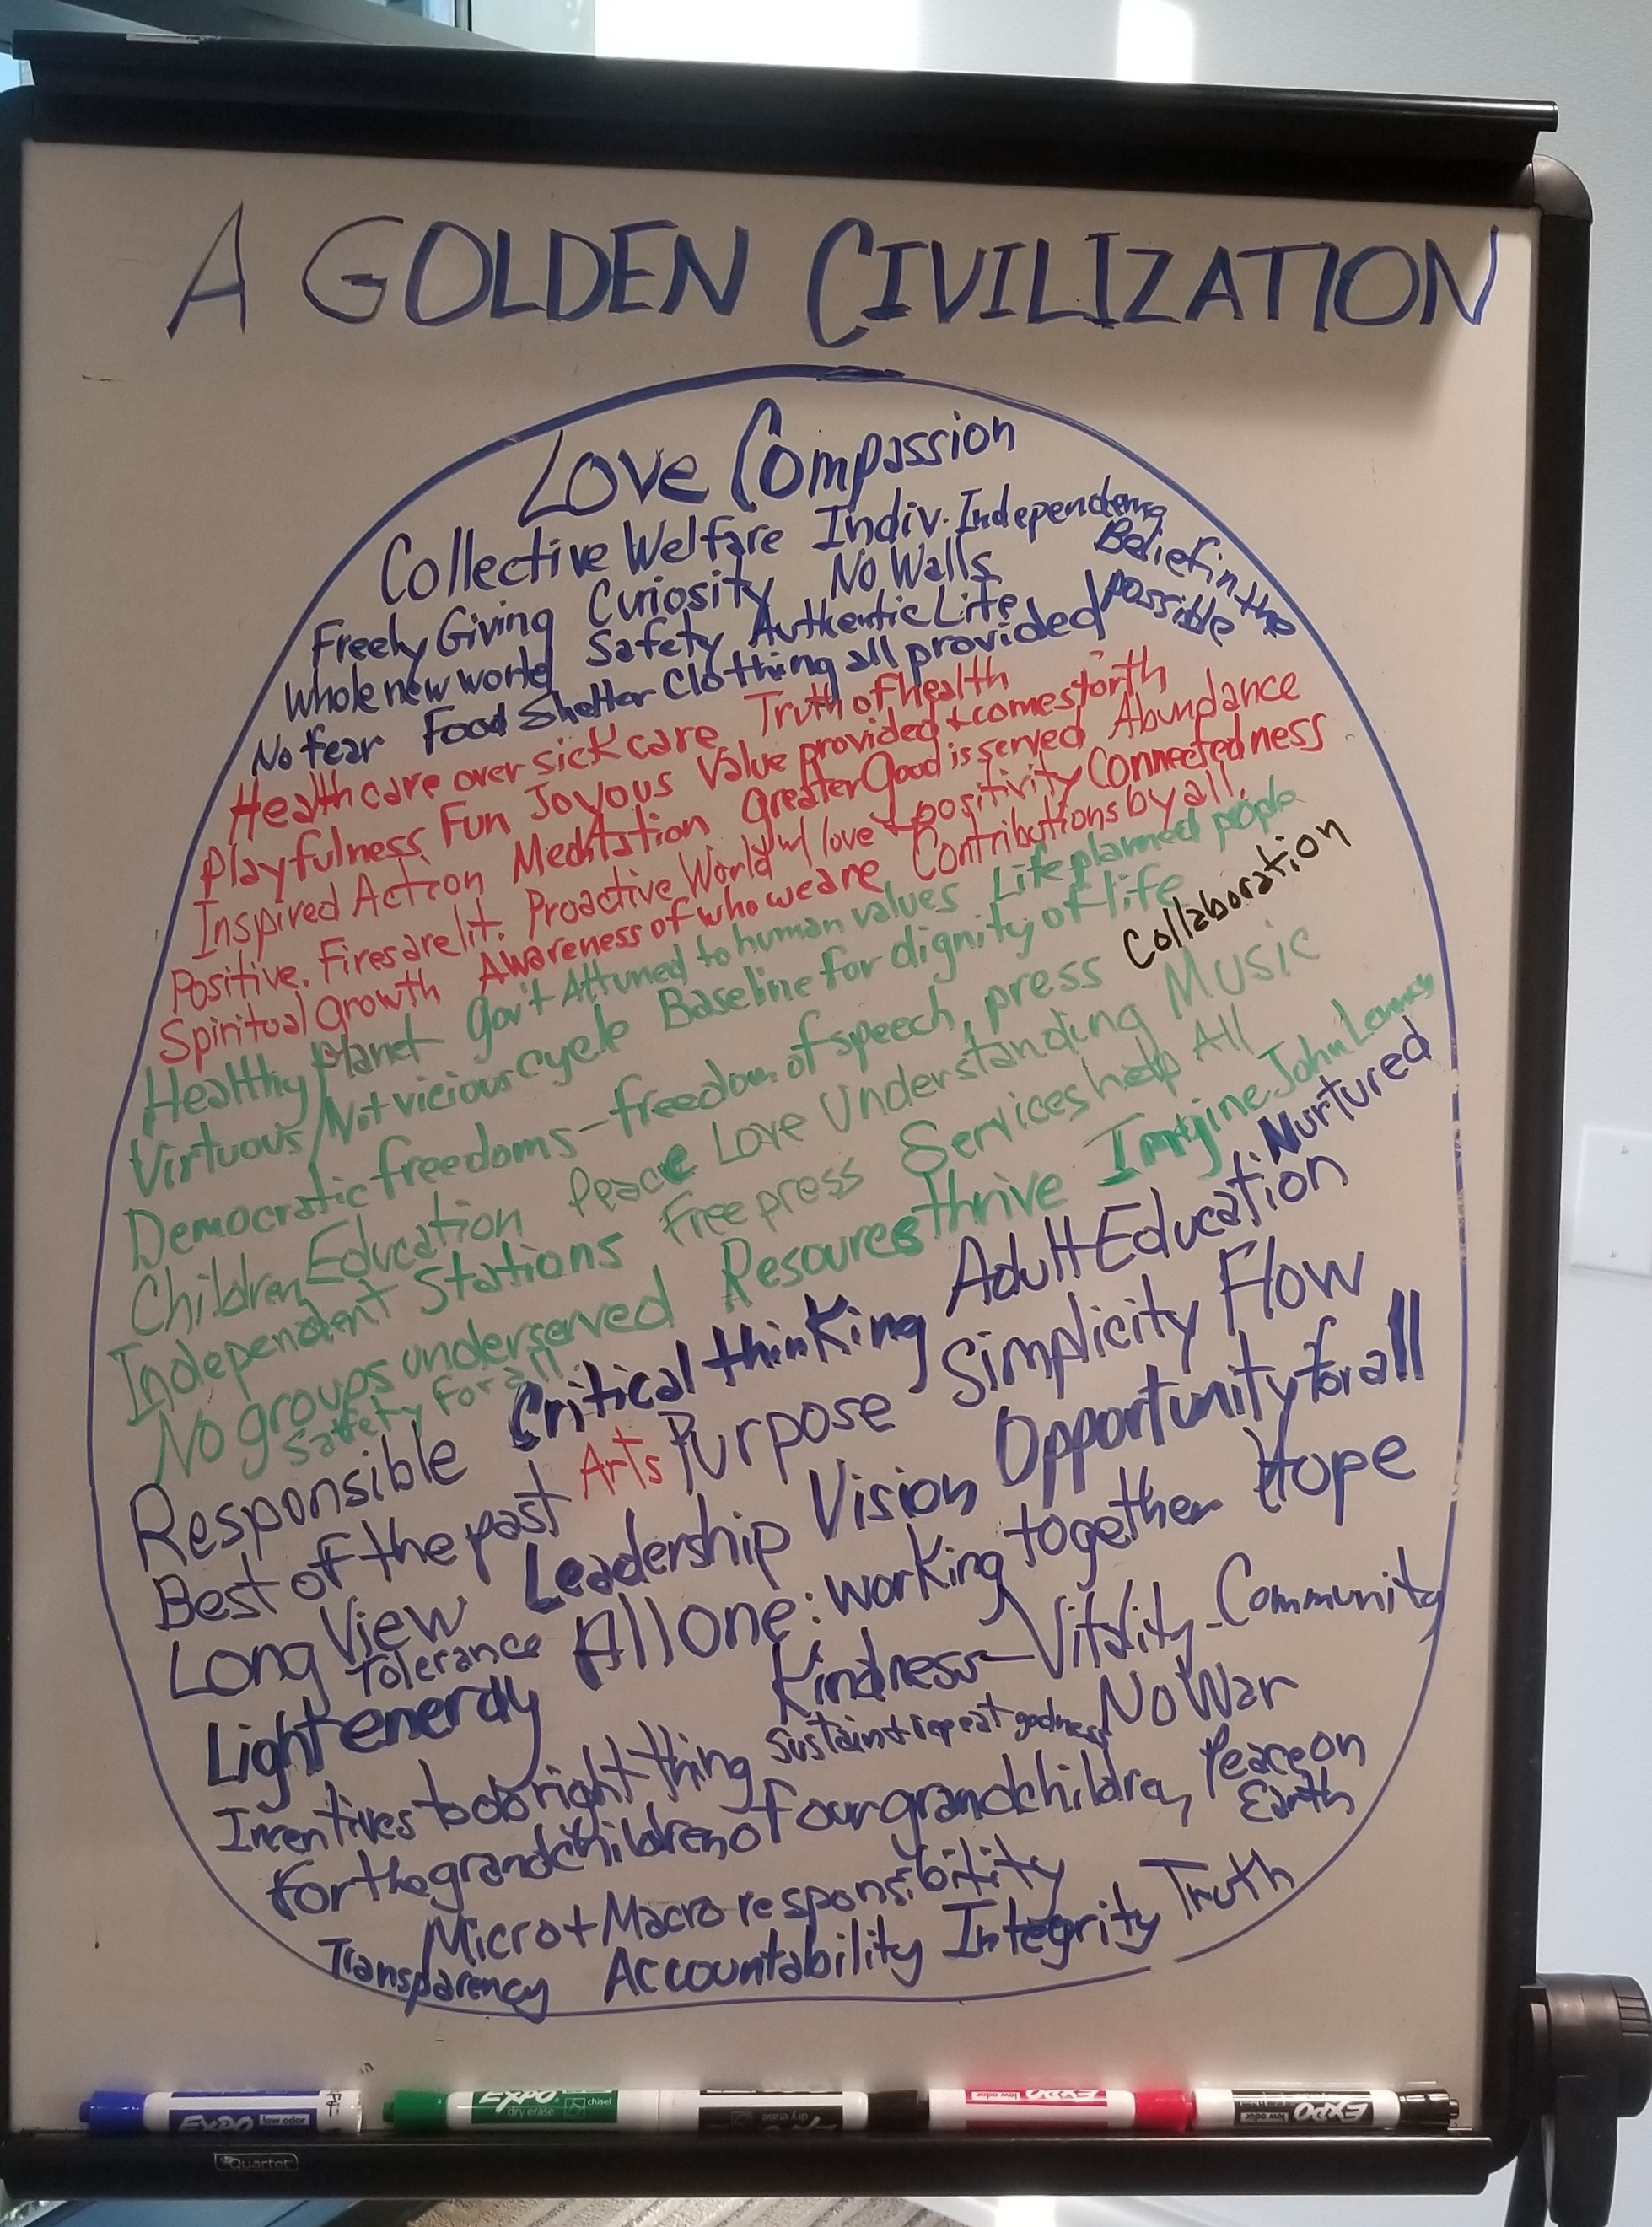 A GOLDEN CIVILIZATION
Love Compassion
Collective Welfare Indiv. Independence
Freely Giving Curiosity No Walls Belief in the
Whole new world Safety Authentic Life possible
No fear Food Shelter Clothing all provided
Healthcare over sickcare Truth of health
Playfulness Fun Joyous Value provided + comes forth
Inspired Action Meditation Greater Good is served Abundance
Positive. Fires are lit. Proactive World w/ love + positivity Connectedness
Spiritual growth Awareness of who we are Contributions by all.
Healthy Planet Gov't Attuned to human values Life planned people
Virtuous/Not vicious cycle Baseline for dignity of life Collaboration
Democratic freedoms - freedom of speech, press
Children Education Peace Love Understanding Music
Independent Stations Free press Services help All
No groups underserved Resources thrive Imagine John
Safety for all.
Responsible Critical thinking Adult Education. Nurtured
Best of the past Arts Purpose Simplicity Flow
Long View Leadership Vision Opportunity for all
Tolerance All one: working together Hope
Light energy Kindness - Vitality - Community
Incentives to do right thing Sustain + repeat goodness No War
for the grandchildren of our grandchildren, Peace on
Earth
Micro + Macro responsibility
Transparency Accountability Integrity Truth
EXPO low odor
EXPO dry erase chisel
dry erase
EXPO low odor
EXPO low odor
Quartet